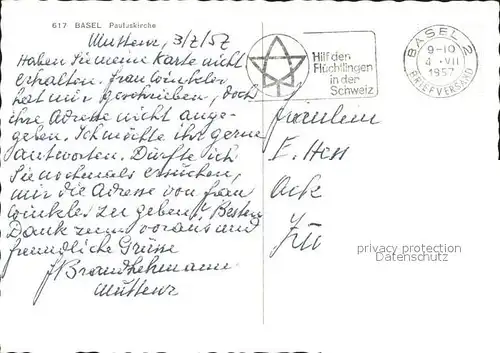 617 BASEL Pauluskirche
Muttenz, 3/7/57
Haben Sie meine Karte nicht
erhalten. Frau Winkler
hat mir geschrieben, doch
ihre Adresse nicht ange-
geben. Ich möchte ihr gerne
antworten. Dürfte ich
Sie nochmals ersuchen,
mir die Adresse von Frau
Winkler zu geben? Besten
Dank zum voraus und
freundliche Grüsse
Muttenz
Hilf den
Flüchtlingen
in der
Schweiz
BASEL 2
9-10
4. VII
1957
BRIEFVERSAND
Fräulein
E. Hess
privacy protection
Datenschutz